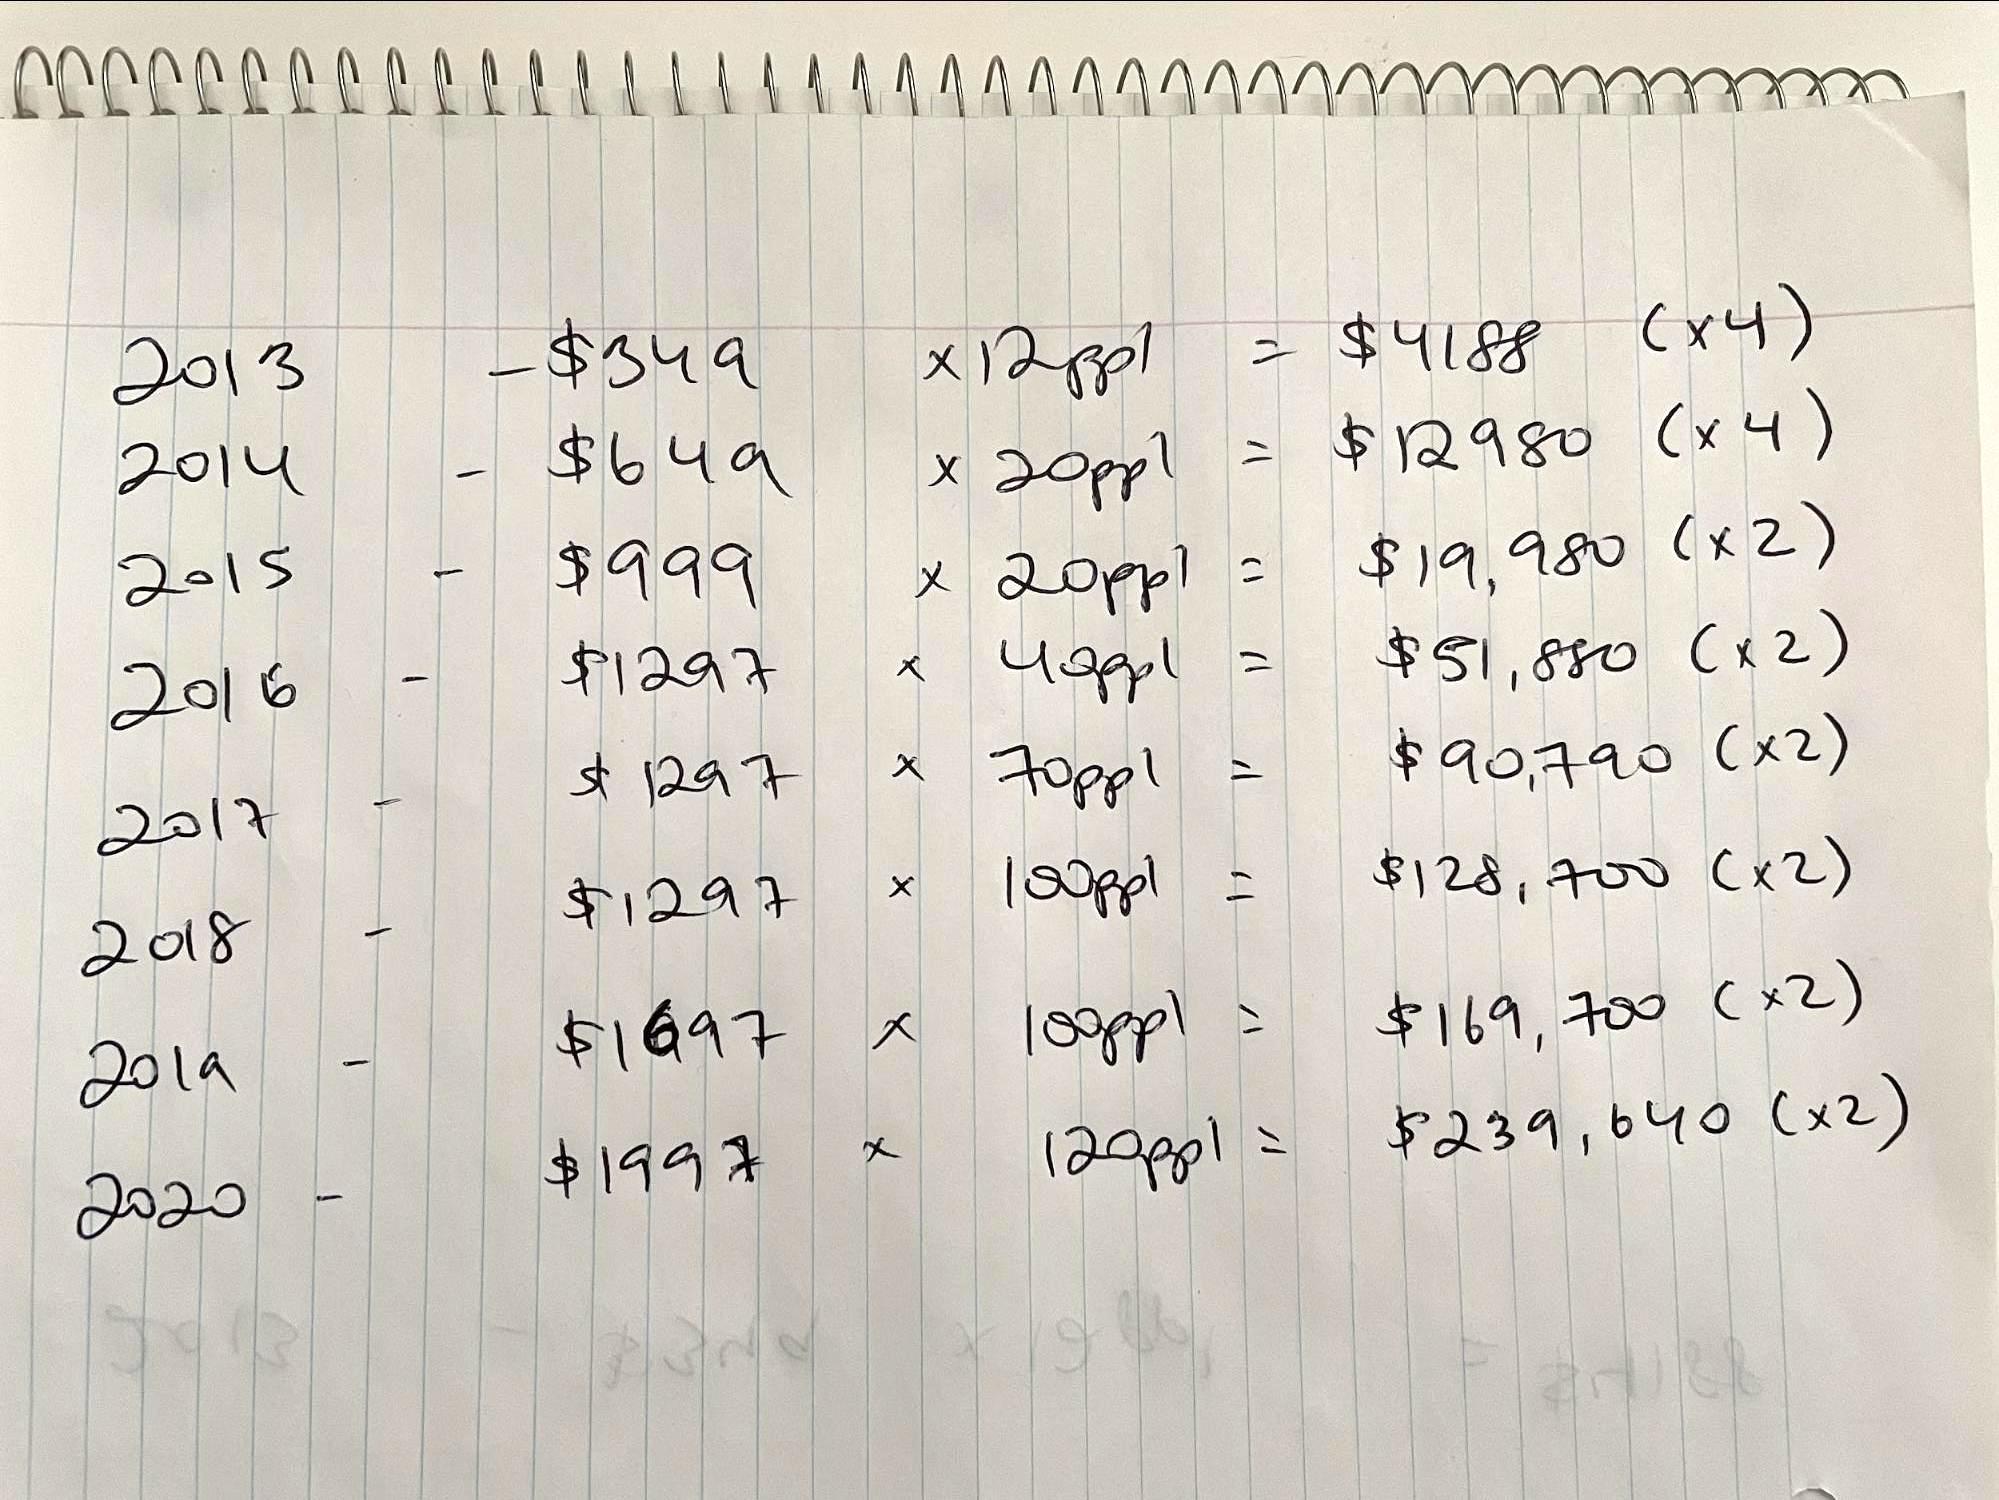 2013 - $349 x 12ppl = $4188 (x4)
2014 - $649 x 20ppl = $12980 (x4)
2015 - $999 x 20ppl = $19,980 (x2)
2016 - $1297 x 40ppl = $51,880 (x2)
2017 - $1297 x 70ppl = $90,790 (x2)
2018 - $1297 x 100ppl = $128,700 (x2)
2019 - $1697 x 100ppl = $169,700 (x2)
2020 - $1997 x 120ppl = $239,640 (x2)